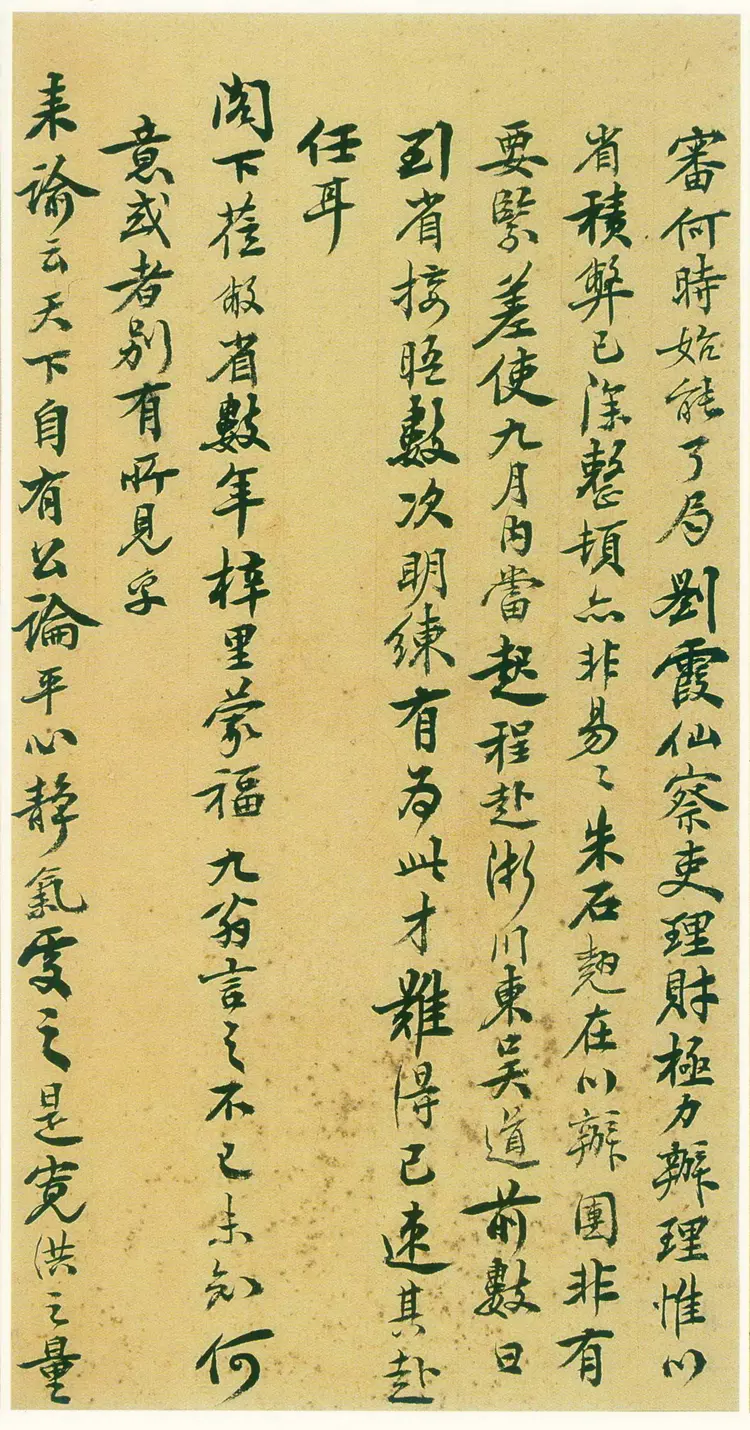 審何時始能了局劉霞仙察吏理財極力辦理惟川
省積弊已深整頓亦非易易朱石翹在川辦團非有
要緊差使九月內當起程赴浙川東吳道前數日
到省接晤數次明練有為此才難得已速其赴
任耳
閣下蒞敝省數年梓里蒙福九翁言之不已未知何
意或者別有所見乎
來諭云天下自有公論平心靜氣受之是寬洪之量